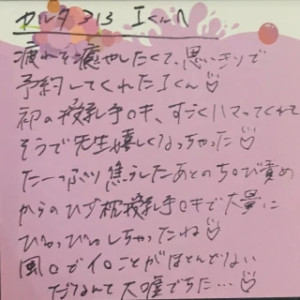 カルテ313 Iくんへ
疲れを癒やしたくて、思いきりで
予約してくれたIくん♡
初の授乳手○キ、すごくハマってくれて
そうで先生嬉しくなっちゃった♡
たーっぷり焦らしたあとのち○び責め
からのひざ枕授乳手○キで大量に
びゅっびゅしちゃったね♡
風○でイ○ことがほとんどない
だなんて大嘘でちた…♡